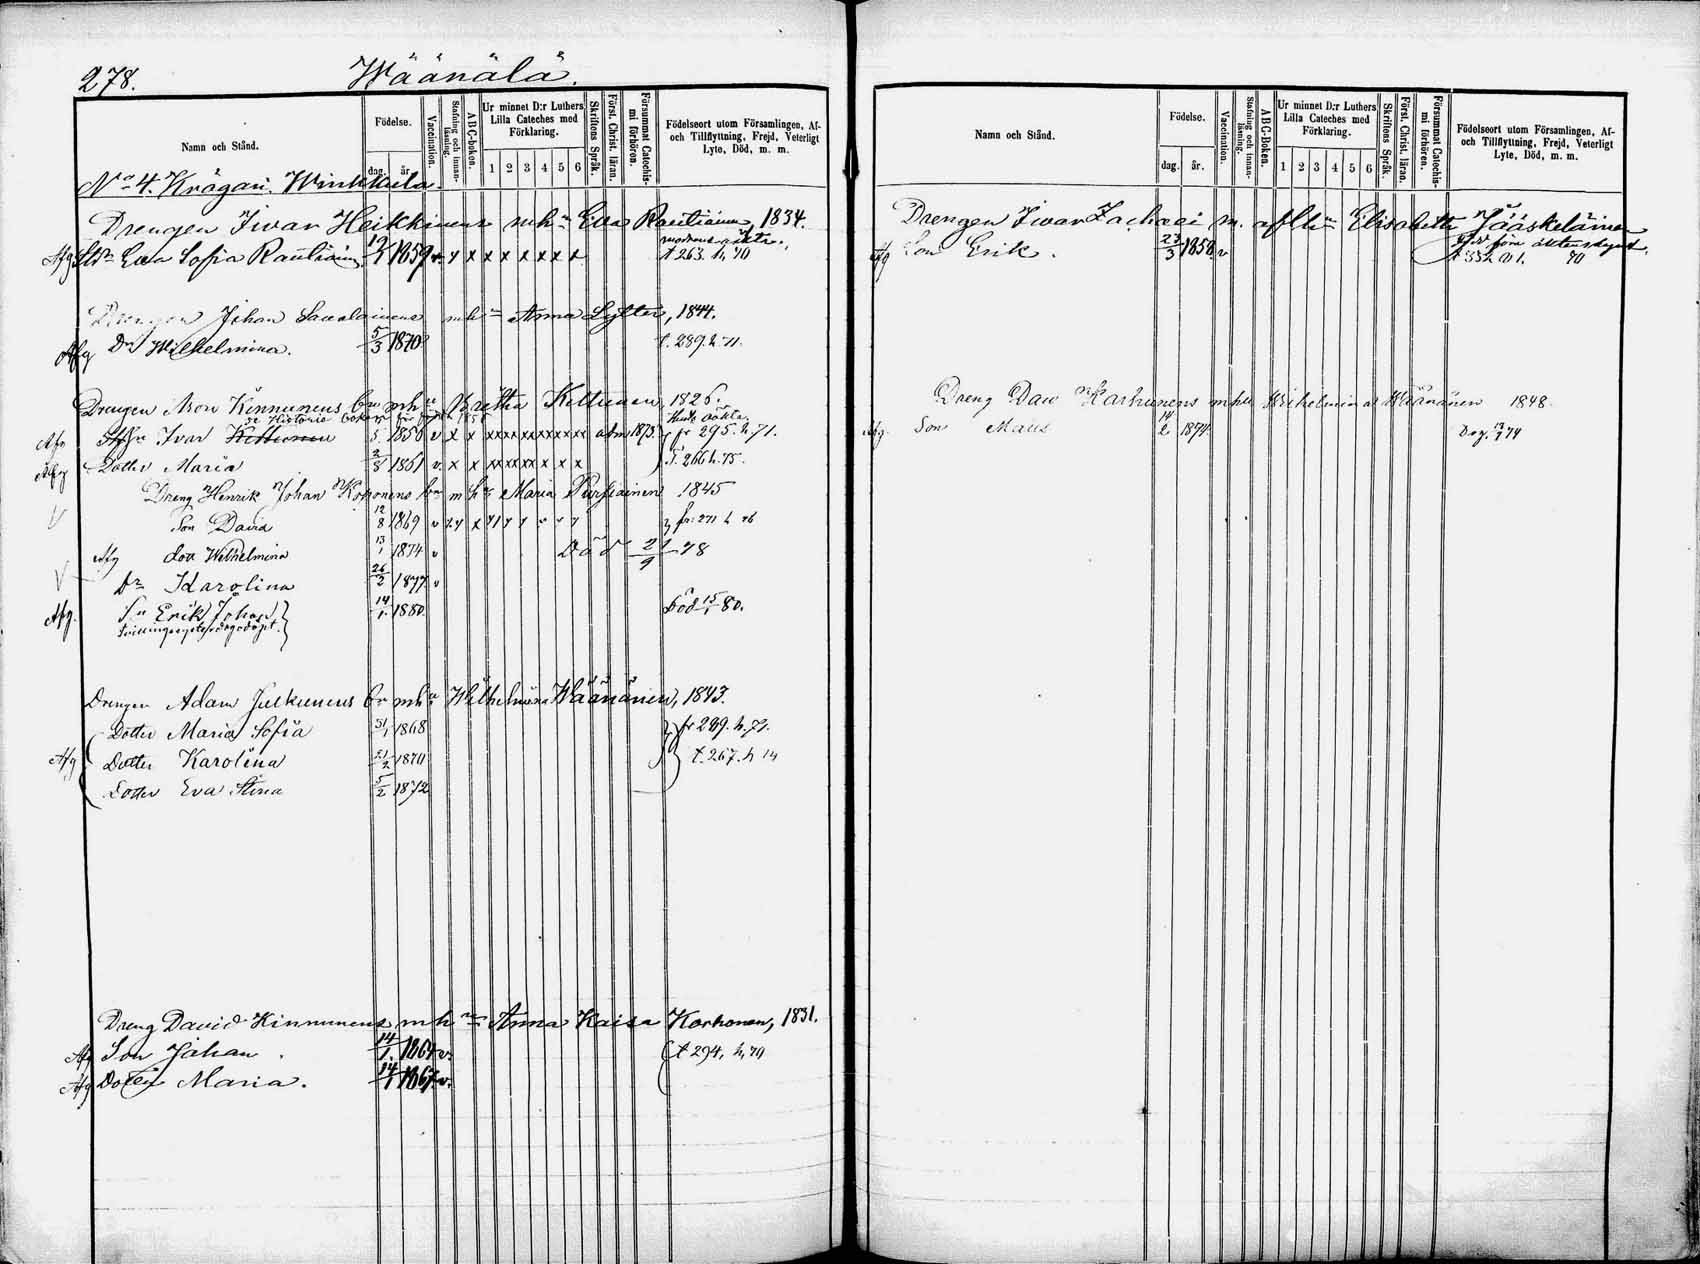 278. Wäänälä.
Namn och Stånd.
Födelse.
dag. år.
Vaccination.
Stafning och innan-läsning.
ABC-boken.
Ur minnet D:r Luthers Lilla Cateches med Förklaring.
1 2 3 4 5 6
Skriftens Språk.
Först. Christ. läran.
Försummat Catechis-mi förhören.
Födelseort utom Församlingen, Af-
och Tillflyttning, Frejd, Veterligt
Lyte, Död, m. m.
No 4. Krägari. Winkkula.
Drengen Ivar Heikkinens mhn Eva Rautiainen, 1834.
Afg Eva Sofia Rautiain 1859 v x x x x x x x x t 263. h, 70
Drengen Johan Savolainens mhn Anna Lytter, 1844.
Afg Dr Wilhelmina. 5/3 1870 t. 289. h 71.
Drengen Aron Kinnunens br mhn Britta Kettunen, 1826.
Afg Ivar Kettunen 1850 v x x xxxxxxxxxxxx adm 1873. fr 295. h. 71.
Afg Dotter Maria 2/8 1861 v. x x xx xx xx x x x x T. 266 h. 75.
Dreng Henrik Johan Koponens br m hu Maria Pursiainen 1845
Son David 12/8 1869 v fr: 271 h 76
Afg dott Wilhelmina 13/1 1874 v Död 21/9 78
dr Karolina 26/2 1877 v
Afg. Sn Erik Johan 14/1 1880. Död 15/1 80.
Drengen Adam Julkunens br mhu Wilhelmina Wäänänen, 1843.
Dotter Maria Sofia 31/1 1868 fr 289. h. 71.
Afg Dotter Karolina 21/2 1870 t. 267. h 14
Dotter Eva Stina 5/2 1872
Dreng David Kinnunens mhn Anna Kaisa Korhonen, 1831.
Afg Son Johan. 14/1 1864 v. t 294, h, 70
Afg Doter Maria. 14/1 1867 v.
Namn och Stånd.
Födelse.
dag. år.
Vaccination.
Stafning och innan-läsning.
ABC-boken.
Ur minnet D:r Luthers Lilla Cateches med Förklaring.
1 2 3 4 5 6
Skriftens Språk.
Först. Christ. läran.
Försummat Catechis-mi förhören.
Födelseort utom Församlingen, Af-
och Tillflyttning, Frejd, Veterligt
Lyte, Död, m. m.
Drengen Ivar Zachaei m. afln Elisabeth Jääskeläinen
född före äktenskapet.
Afg Son Erik. 23/3 1858 v 70
Dreng Dav Karhunens mhu Wilhelmina Wäänänen 1848.
Afg. Son Mats 14/2 1874.